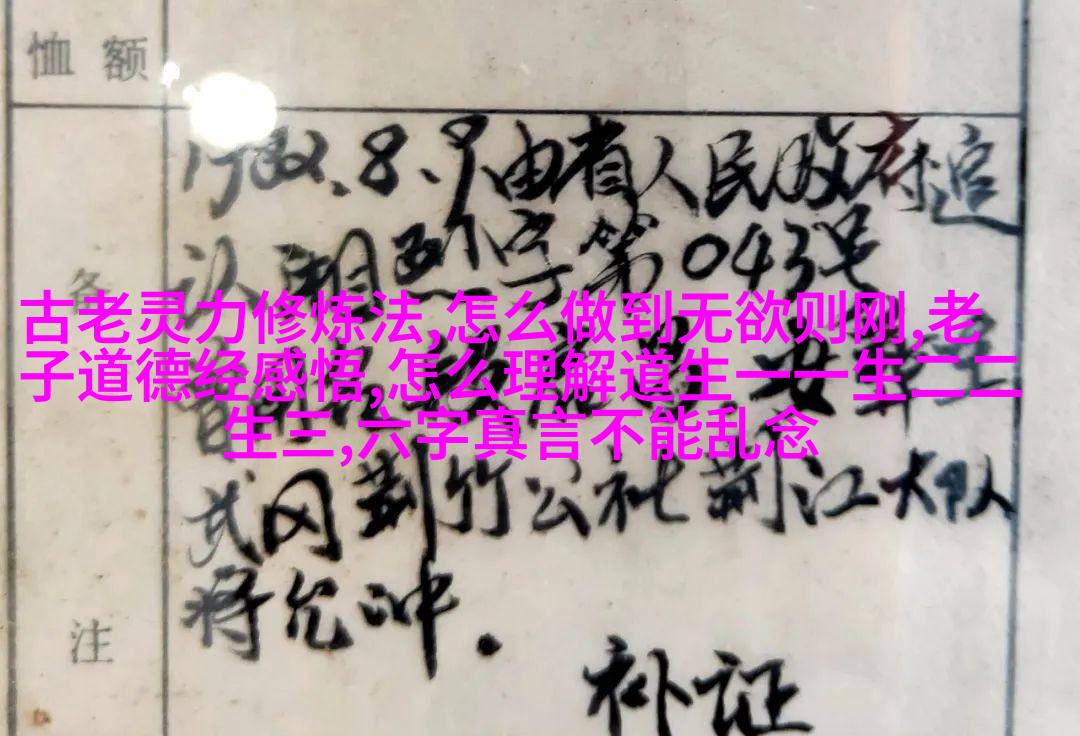 恤额
1982.8.9由省人民政府追
认湘烈字第043号
备
古老灵力修炼法,怎么做到无欲则刚,老
子道德经感悟,怎么理解道生一一生二二
生三,六字真言不能乱念
武冈荆竹公社荆江大队
蒋允冲.
注
补证